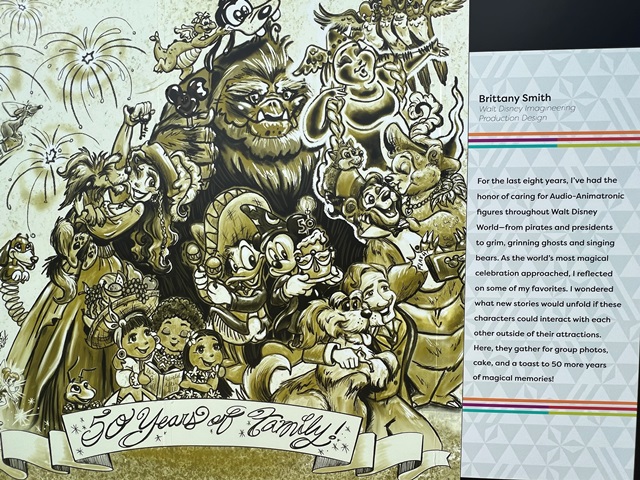 50
50 Years of Family!
Brittany Smith
Walt Disney Imagineering
Production Design
For the last eight years, I've had the
honor of caring for Audio-Animatronic
figures throughout Walt Disney
World—from pirates and presidents
to grim, grinning ghosts and singing
bears. As the world's most magical
celebration approached, I reflected
on some of my favorites. I wondered
what new stories would unfold if these
characters could interact with each
other outside of their attractions.
Here, they gather for group photos,
cake, and a toast to 50 more years
of magical memories!